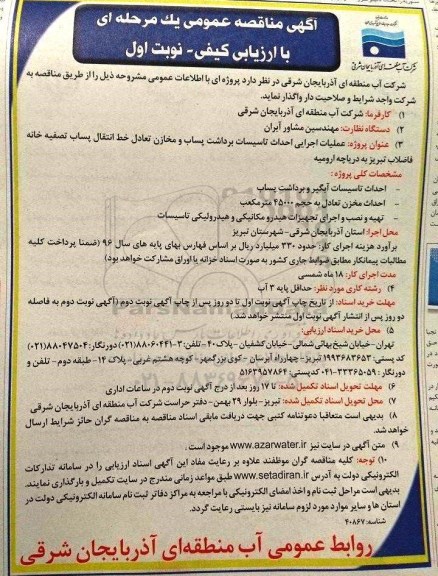 آگهی مناقصه عمومی یك مرحله ای
با ارزیابی کیفی - نوبت اول
شرکت آب منطقه ای آذربایجان شرقی
شرکت آب منطقه ای آذربایجان شرقی در نظر دارد پروژه ای با اطلاعات عمومی مشروحه ذیل را از طریق مناقصه به
شرکت واجد شرایط و صلاحیت دار واگذار نماید.
۱) کارفرما: شرکت آب منطقه ای آذربایجان شرقی
۲) دستگاه نظارت: مهندسین مشاور آبران
۳) عنوان پروژه: عملیات اجرایی احداث تاسیسات برداشت پساب و مخازن تعادل خط انتقال پساب تصفیه خانه
فاضلاب تبریز به دریاچه ارومیه
مشخصات کلی پروژه:
- احداث تاسیسات آبگیر و برداشت پساب
- احداث مخزن تعادل به حجم ۴۵۰۰۰ مترمکعب
- تهیه و نصب و اجرای تجهیزات هیدرو مکانیکی و هیدرولیکی تاسیسات
محل اجرا: استان آذربایجان شرقی- شهرستان تبریز
برآورد هزینه اجرای کار: حدود ۳۳۰ میلیارد ریال بر اساس فهارس بهای پایه های سال ۹۶ (ضمنا پرداخت کلیه
مطالبات پیمانکار مطابق ضوابط جاری کشور به صورت اسناد خزانه یا اوراق مشارکت خواهد بود)
مدت اجرای کار: ۱۸ ماه شمسی
۴) رشته کاری مورد نظر: حداقل پایه ۳ آب
مهلت خرید اسناد: از تاریخ چاپ آگهی نوبت اول تا دو روز پس از چاپ آگهی نوبت دوم (آگهی نوبت دوم به فاصله
دو روز پس از انتشار آگهی نوبت اول منتشر خواهد شد.)
۵) محل خرید اسناد ارزیابی:
تهران- خیابان شیخ بهائی شمالی- خیابان کشفیان - پلاک ۴۰- تلفن: ۳-۸۸۰۶۰۴۴۱(۰۲۱) دورنگار: ۸۸۰۴۷۵۰۴(۰۲۱)
کد پستی: ۱۹۹۳۶۸۳۶۵۳ تبریز- چهارراه آبرسان - کوی بزرگمهر - کوچه هشتم غربی - پلاک ۱۴ - طبقه دوم - تلفن و
دورنگار: ۳۳۳۶۵۰۵۹-۰۴۱ کدپستی: ۵۱۶۳۹۵۷۸۶۴
۶) مهلت تحویل اسناد تکمیل شده: تا ۱۷ روز بعد از درج آگهی نوبت دوم در ساعات اداری
۷) محل تحویل اسناد تکمیل شده: تبریز- بلوار ۲۹ بهمن - دفتر حراست شرکت آب منطقه ای آذربایجان شرقی
۸) بدیهی است متعاقبا دعوتنامه کتبی جهت دریافت مابقی اسناد مناقصه به مناقصه گران حائز شرایط ارسال
خواهد شد.
۹) متن آگهی در سایت نیز www.azarwater.ir موجود است.
۱۰) توجه: کلیه مناقصه گران موظفند علاوه بر رعایت مفاد این آگهی اسناد ارزیابی را در سامانه تدارکات
الکترونیکی دولت به آدرس www.setadiran.ir طبق مواعد زمانی مندرج در سایت تکمیل و بارگذاری نمایند.
بدیهی است مراحل ثبت نام و اخذ امضای الکترونیکی با مراجعه به مراکز دفاتر ثبت نام سامانه الکترونیکی دولت در
استان ها و سایر موارد مورد لزوم سامانه نیز بایستی رعایت گردد.
شناسه: ۴۰۸۶۷
روابط عمومی آب منطقه‌ای آذربایجان شرقی